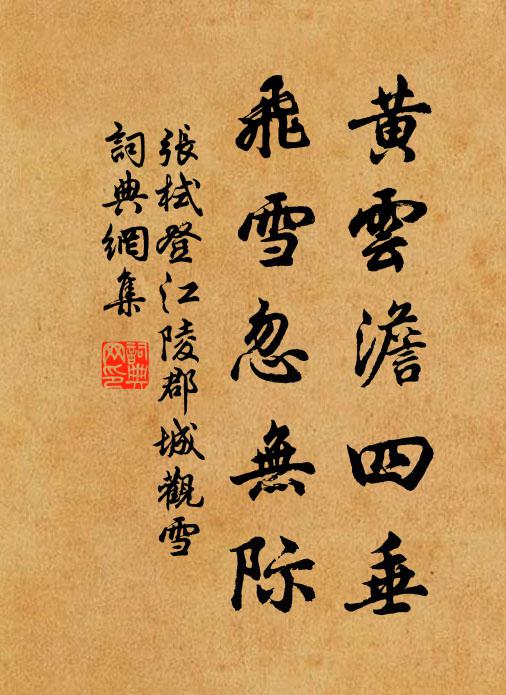 黃雲澹四垂
飛雪忽無际
張栻登江陵郡城觀雪
詞典網集
詞典网印